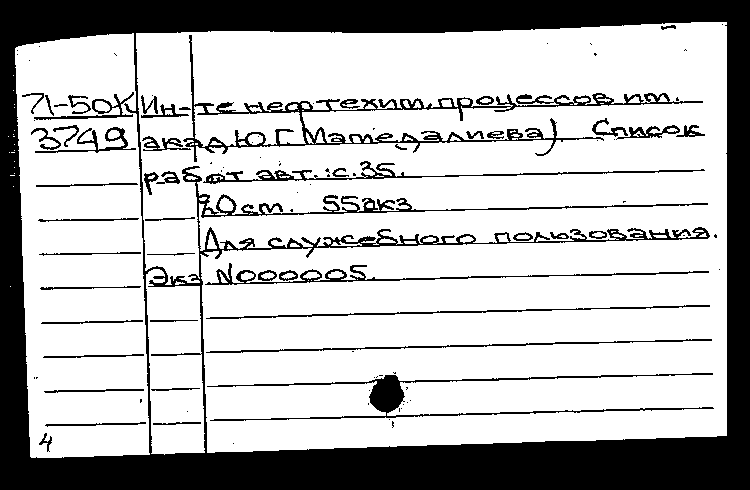 71-50К Ин-те нефтехим. процессов им.
3749 акад. Ю.Г. Мамедалиева) Список
работ авт.: с. 35.
20 см. 55 экз
Для служебного пользования.
Экз. N000005.
4